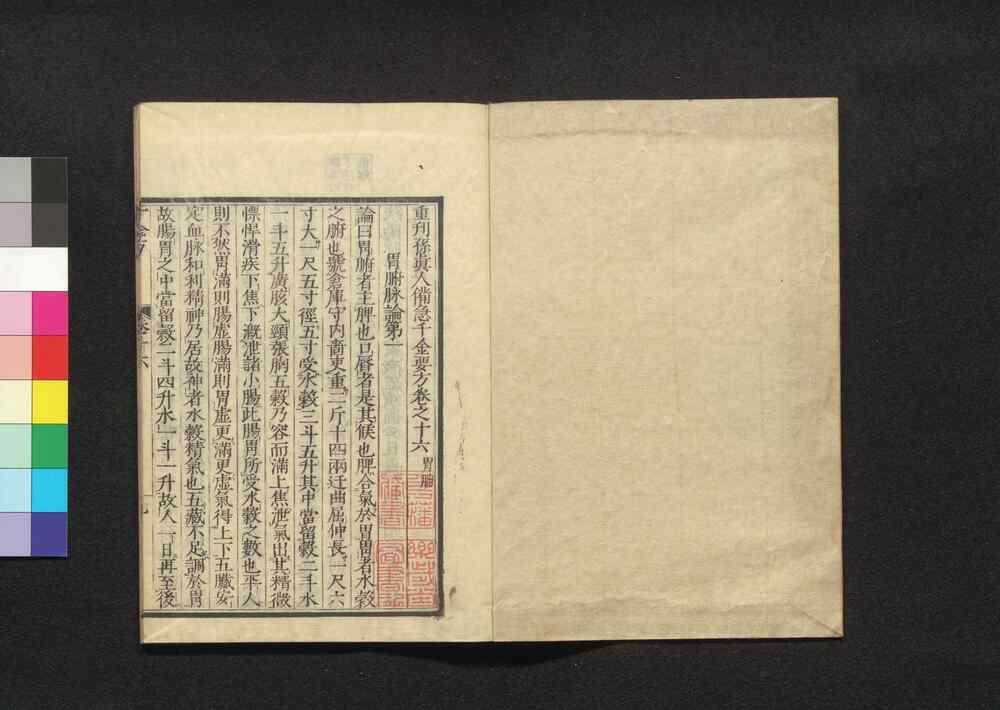 重刊孫眞人備急千金要方卷之十六 胃腑
胃腑脉論第一
論曰胃腑者主脾也口脣者是其候也脾合氣於胃胃者水穀
之腑也號倉庫守内嗇吏重二斤十四兩迂曲屈伸長二尺六
寸大一尺五寸徑五寸受水穀三斗五升其中當留穀二斗水
一斗五升廣胲大頸張胸五穀乃容而滿上焦泄氣出其精微
慓悍滑疾下焦下漑泄諸小腸此腸胃所受水穀之數也平人
則不然胃滿則腸虛腸滿則胃虛更滿更虛氣得上下五臟安
定血脉和利精神乃居故神者水穀精氣也五藏不足調於胃
故腸胃之中當留穀二斗四升水一斗一升故人一日再至後
千金方 卷十六